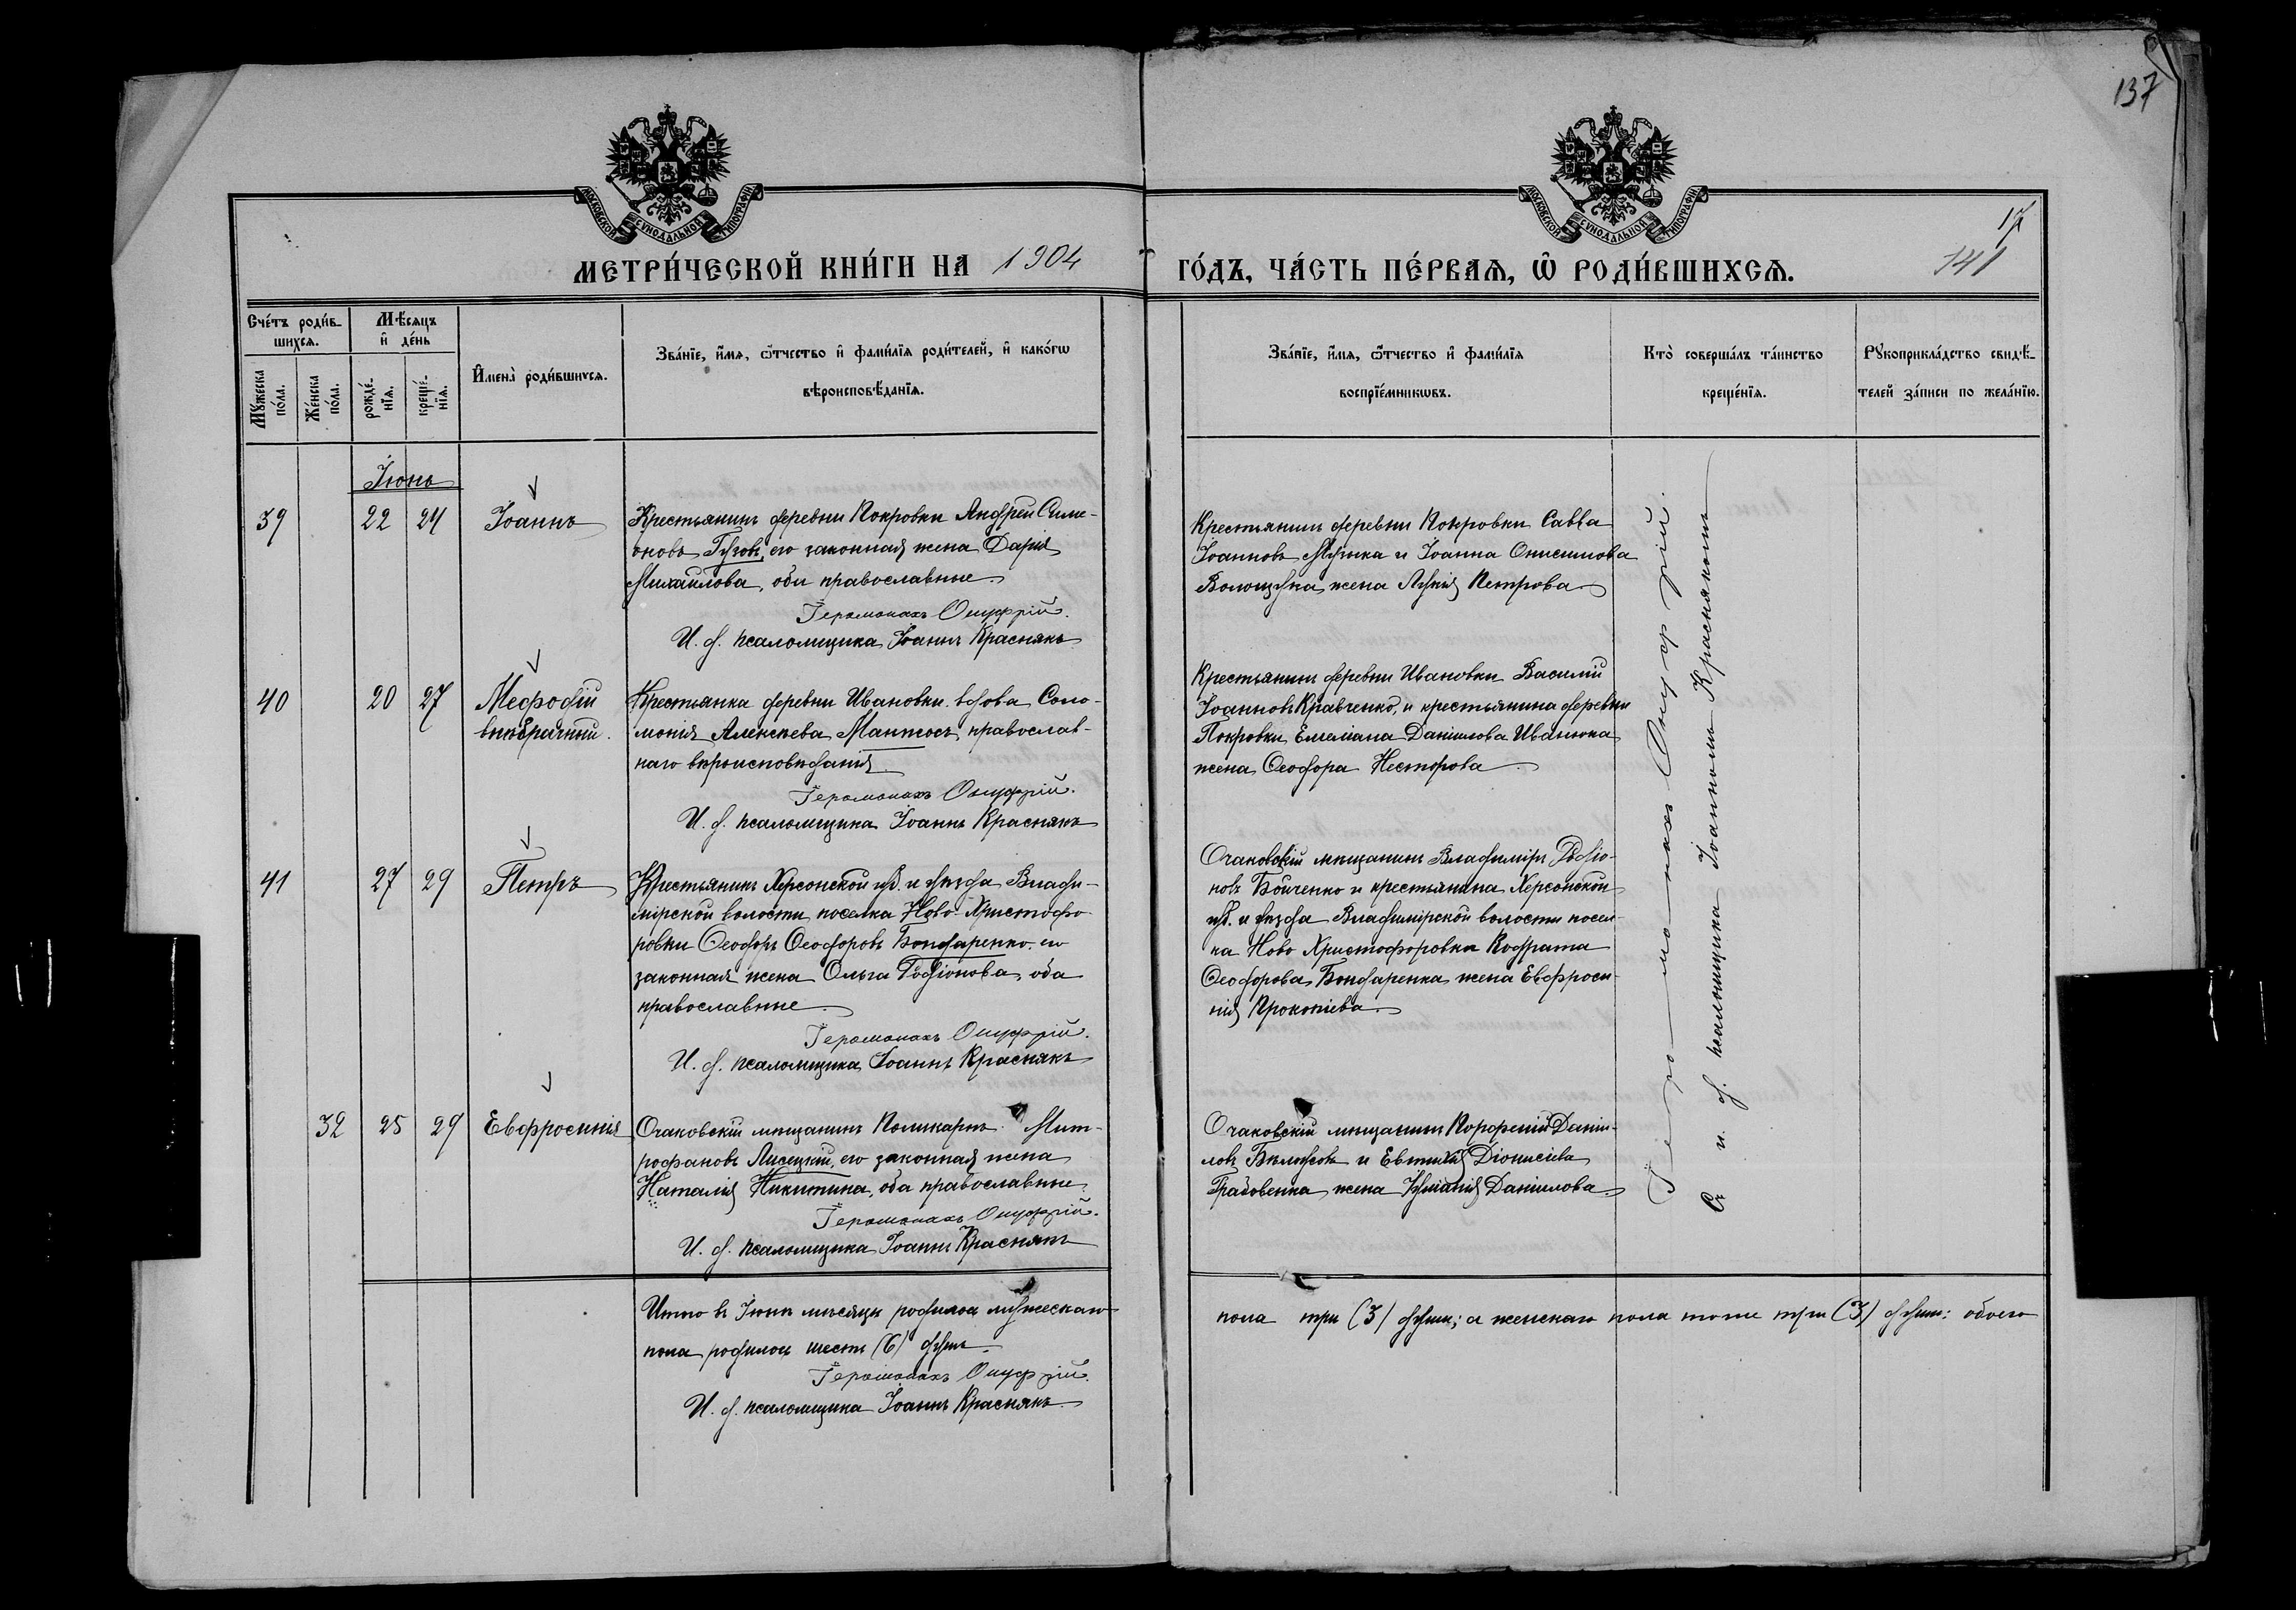 137
17
141
МОСКОВСКОЙ СѴНОДАЛЬНОЙ ТИПОГРАФІИ
МОСКОВСКОЙ СѴНОДАЛЬНОЙ ТИПОГРАФІИ
МЕТРИ́ЧЕСКОЙ КНИ́ГИ НА 1904
ГО́ДЪ, ЧА́СТЬ ПЕ́РВАѦ, Ѡ҆ РОДИ́ВШИХСѦ.
Сче́тъ роди́в-
шихсѧ.
Мꙋ́жеска
по́ла.
Же́нска
по́ла.
Мѣ́сѧцъ
и҆ де́нь
рожде́-
нїѧ.
креще́-
нїѧ.
И҆мена̀ роди́вшихсѧ.
Зва́нїе, и҆́мѧ, ѻ҆́тчество и҆ фами́лїѧ роди́телей, и҆ како́гѡ
вѣроисповѣ́данїѧ.
Зва́нїе, и҆́мѧ, ѻ҆́тчество и҆ фами́лїѧ
воспрїе́мникѡвъ.
Кто̀ соверша́лъ та́инство
креще́нїѧ.
Рꙋкоприкла́дство свидѣ́-
телей за́писи по жела́нїю.
Іюнь
39 22 24 Іоаннъ
Крестьянинъ деревни Покровки Андрей Симе-
оновъ его законная жена Дарія
Михаилова, оба православные
Іеромонахъ Онуфрій.
И. д. псаломщика Іоаннъ Краснякъ
Крестьянинъ деревни Покровки Савва
Іоанновъ и Іоанна Онисимова
Волощука жена Лукія Петрова
40 20 27 Меѳодій
внѣбрачный.
Крестьянка деревни Ивановки вдова Соло-
монія Алексѣева Мантосъ православ-
наго вѣроисповѣданія
Іеромонахъ Онуфрій.
И. д. псаломщика Іоаннъ Краснякъ
Крестьянинъ деревни Ивановки Василій
Іоанновъ Кравченко, и крестьянина деревни
Покровки Емеліана Даніилова Иванюка
жена Ѳеодора Несторова
41 27 29 Петръ
Крестьянинъ Херсонской губ. и уѣзда Влади-
мірской волости поселка Ново-Христофо
ровки Ѳеодоръ Ѳеодоровъ Бондаренко его
законная жена Ольга Родіонова, оба
православные
Іеромонахъ Онуфрій.
И. д. псаломщика Іоаннъ Краснякъ
Очаковскій мѣщанинъ Владиміръ Родіо-
новъ Бойченко и крестьянина Херсонской
губ. и уѣзда Владимірской волости посел-
ка Ново Христофоровка Кодрата
Ѳеодорова Бондаренка жена Евфроси-
нія Прокопіева
32 25 29 Евфросинія
Очаковскій мѣщанинъ Поликарпъ Мит-
рофановъ Лисецкій, его законная жена
Наталія Никитина, оба православные
Іеромонахъ Онуфрій.
И. д. псаломщика Іоаннъ Краснякъ
Очаковскій мѣщанинъ Порфирій Даніи-
ловъ и Евтихія Діонисіева
Грабовенка жена Іуліанія Даніилова
Іеромонахъ Онуфрій.
Съ и. д. псаломщика Іоанномъ Краснякомъ
Итого въ Іюнѣ мѣсяцѣ родилось мужескаго
пола три (3) души; а женскаго пола тоже три (3) души; обоего
пола родилось шесть (6) душъ.
Іеромонахъ Онуфрій.
И. д. псаломщика Іоаннъ Краснякъ